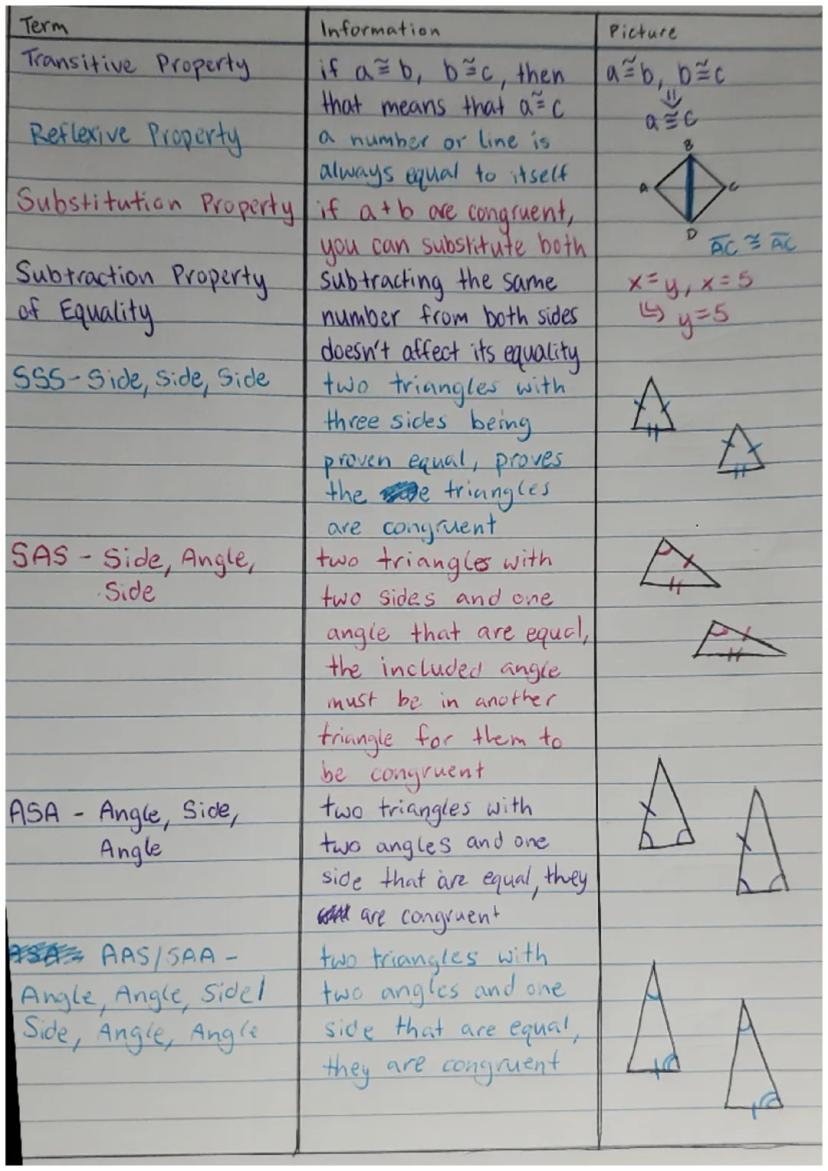 Term
Information
Picture
Transitive Property
if a≅b, b≅c, then
that means that a≅c
a≅b, b≅c
⇓
a≅c
Reflexive Property
a number or line is
always equal to itself
B
A
C
D
AC ≅ AC
Substitution Property
if a+b are congruent,
you can substitute both
x=y, x=5
↳ y=5
Subtraction Property
of Equality
subtracting the same
number from both sides
doesn't affect its equality
SSS-Side, Side, Side
two triangles with
three sides being
proven equal, proves
the triangles
are congruent
SAS - Side, Angle,
Side
two triangles with
two sides and one
angle that are equal,
the included angle
must be in another
triangle for them to
be congruent
ASA - Angle, Side,
Angle
two triangles with
two angles and one
side that are equal, they
are congruent
AAS/SAA -
Angle, Angle, Side/
Side, Angle, Angle
two triangles with
two angles and one
side that are equal,
they are congruent